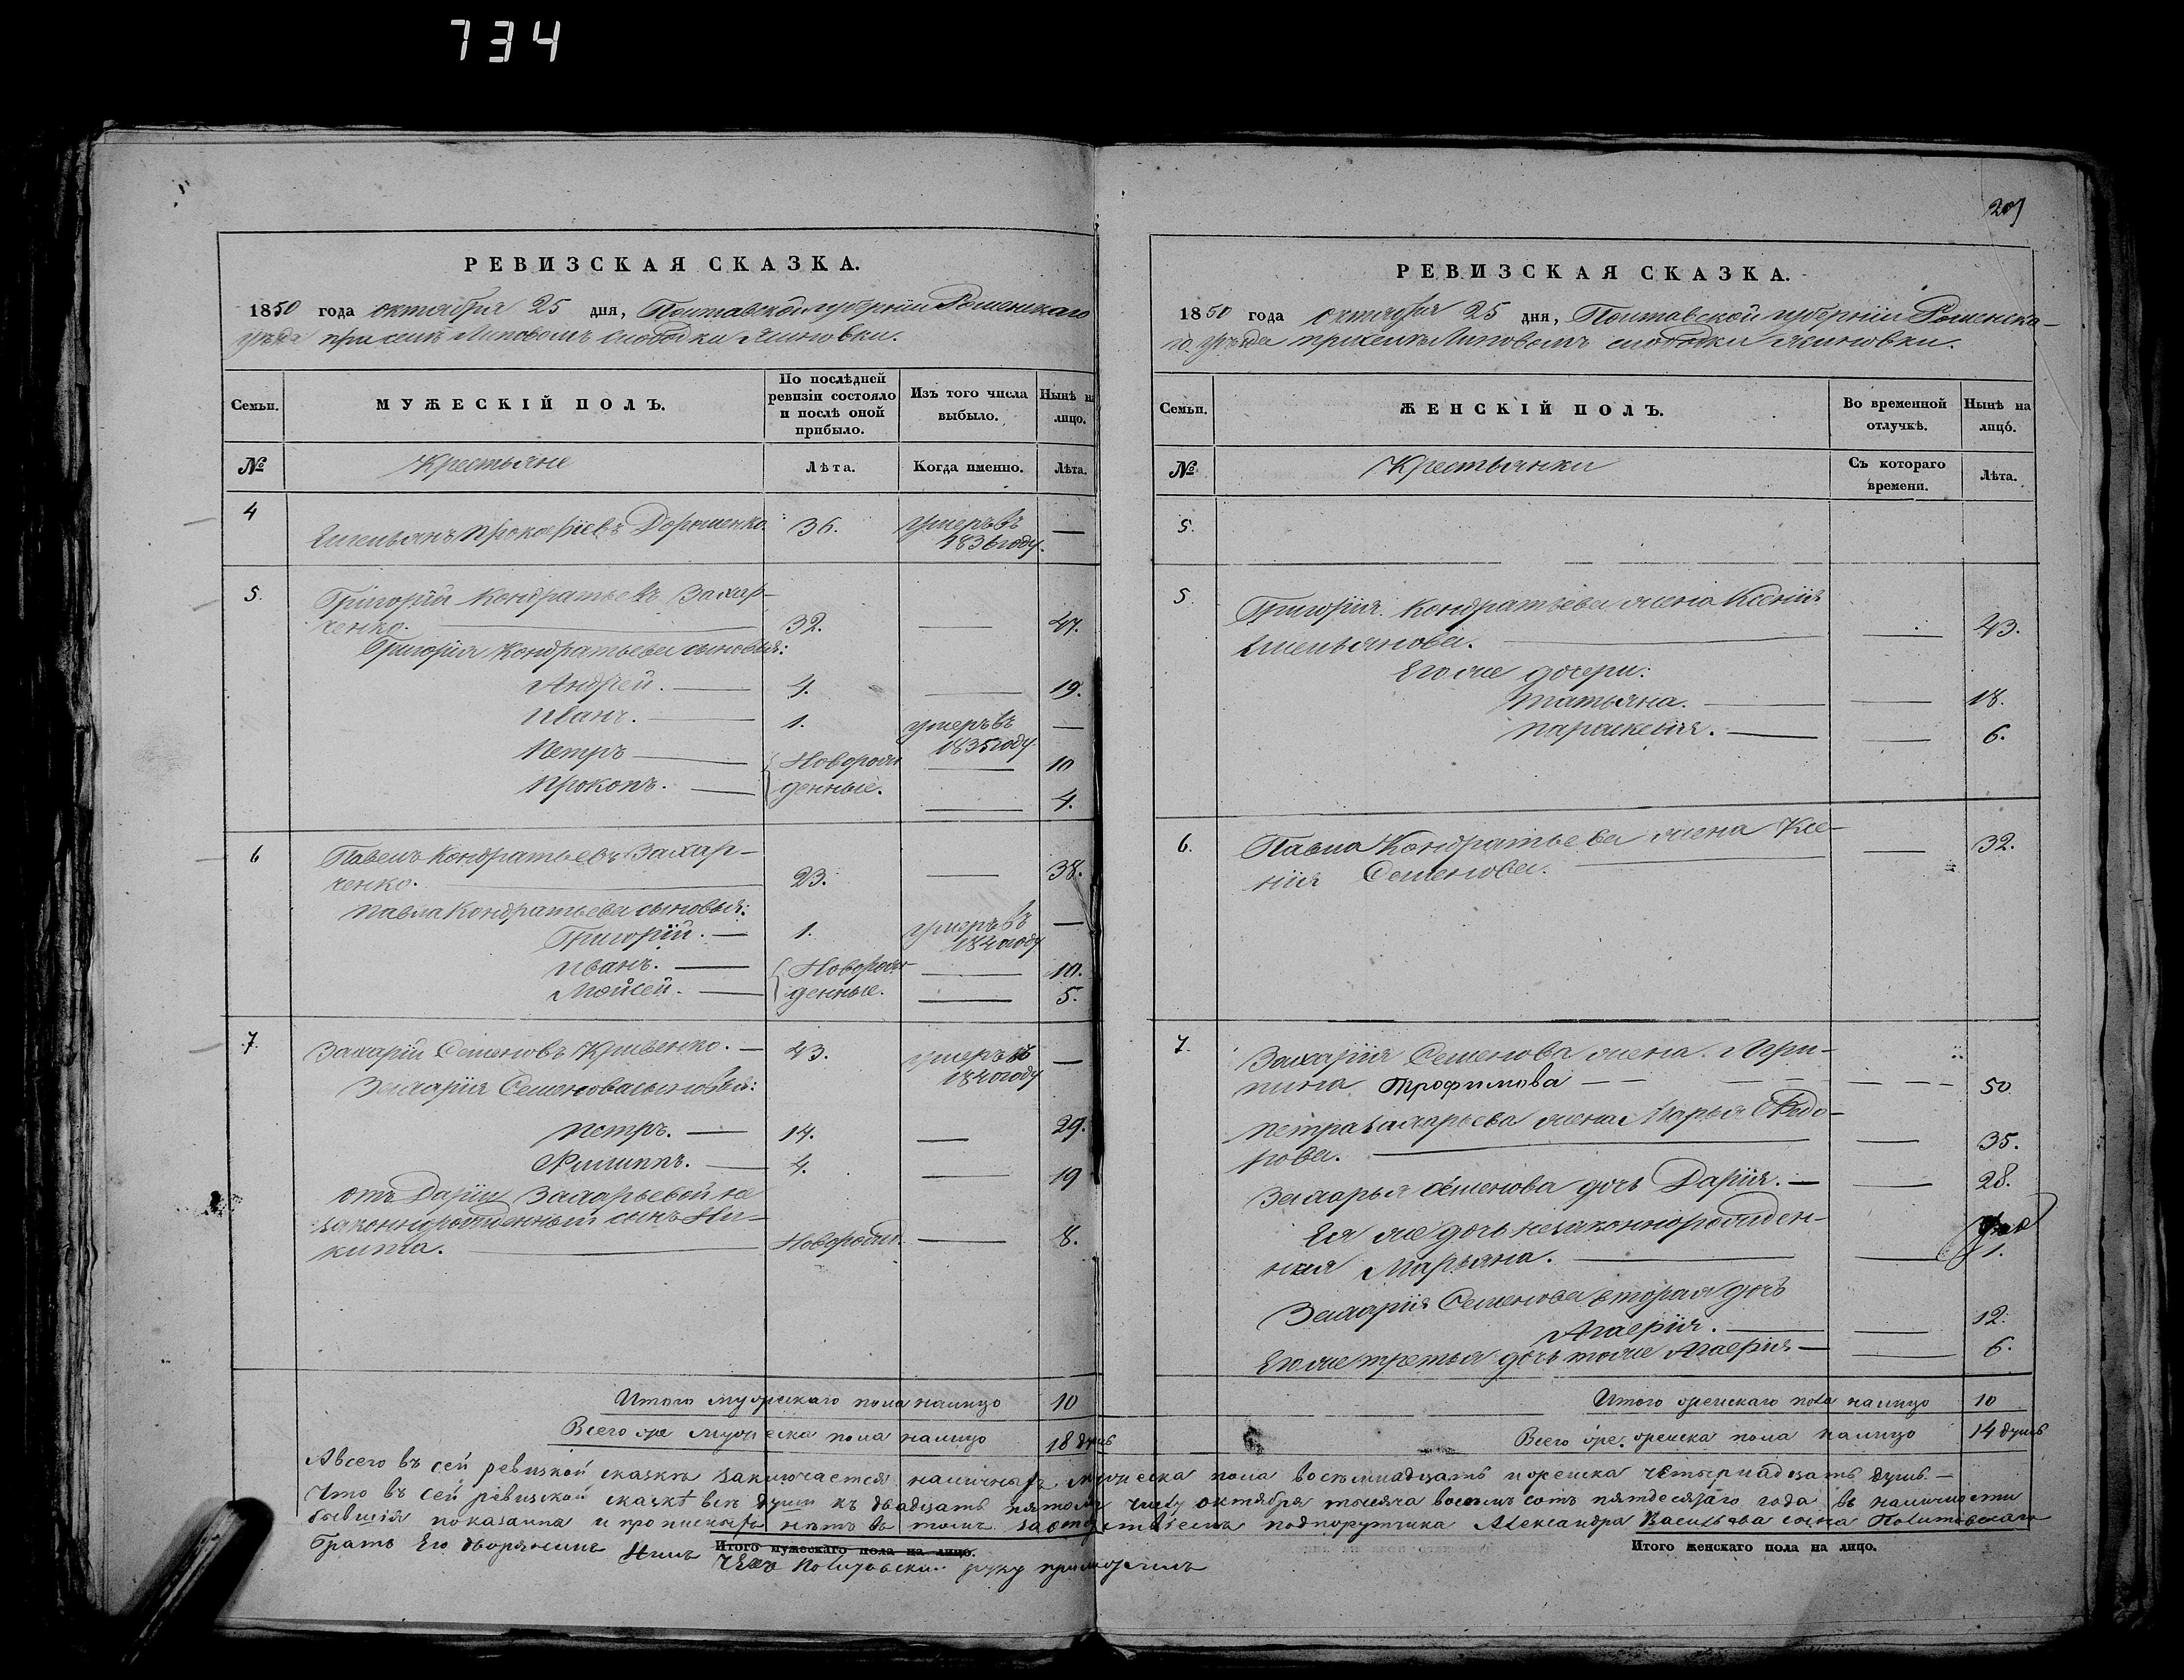 734
207
РЕВИЗСКАЯ СКАЗКА.
1850 года октября 25 дня, Полтавской губерніи Роменскаго
уѣзда при селѣ Липовомъ слободки Ясиновки.
Семьи.
МУЖЕСКІЙ ПОЛЪ.
По послѣдней
ревизіи состояло
и послѣ оной
прибыло.
Изъ того числа
выбыло.
Нынѣ на
лицо.
№
Крестьяне
Лѣта.
Когда именно.
Лѣта.
4
Емельянъ Прокофіевъ Дорошенко
36.
умеръ въ
1836 году.
—
5.
Григорій Кондратьевъ Захар-
ченко. — 32. — 47.
Григорія Кондратьева сыновья:
Андрей. — 4. — 19.
Иванъ. — 1. умеръ въ —
1835 году
Петръ — Новорож- — 10
Прокопъ. — денные. — 4.
6
Павелъ Кондратьевъ Захар-
ченко. — 23. — 38.
Павла Кондратьева сыновья:
Григорій. — 1. умеръ въ —
1840 году
Иванъ. — Новорож- — 10.
Мойсей. — денные. — 5.
7.
Захарій Семеновъ Кривенко. — 43. умеръ въ —
1840 году
Захарія Семенова сыновья:
Петръ. — 14. — 29.
Филиппъ. — 4. — 19
отъ Даріи Захарьевой не
законнорожденный сынъ Ни-
кита. — Новорожд. — 8.
Итого мужескаго пола налицо 10
Всего же мужеска пола налицо 18 душъ
РЕВИЗСКАЯ СКАЗКА.
1850 года октября 25 дня, Полтавской губерніи Роменска-
го уѣзда при селѣ Липовомъ слободки Ясиновки.
Семьи.
ЖЕНСКІЙ ПОЛЪ.
Во временной
отлучкѣ.
Нынѣ на
лицо.
№
Крестьянки
Съ котораго
времени.
Лѣта.
5.
5.
Григорія Кондратьева жена Ксенія
Емельянова. — 43.
Его же дочери:
Татьяна. — — 18.
Параскевія. — — 6.
6.
Павла Кондратьева жена Ксе- — 32.
нія Семенова. —
7.
Захарія Семенова жена Агри-
пина Трофимова — — 50
Петра Захарьева жена Марья Федо-
рова. — — 35.
Захарья Семенова дочь Дарія. — — 28.
Ея же дочь незаконнорожден-
ная Марьяна. — — 1.
Захарія Семенова вторая дочь
Агафія. — — 12.
Его же третья дочь тоже Агафія — — 6.
Итого женскаго пола налицо 10
Всего же женска пола налицо 14 душъ
А всего въ сей ревизкой сказкѣ заключается наличныхъ мужеска пола восемнадцать и женска четырнадцать душъ. —
Что въ сей ревизской сказкѣ всѣ души къ двадцать пятому числу октября тысяча восемь сотъ пятдесятаго года въ наличности
бывшія показанны и прописныхъ нѣтъ въ томъ за подпорутчика Александра Васильева сына
Братъ Его дворянинъ руку приложилъ
Итого мужескаго пола на лицо.
Итого женскаго пола на лицо.